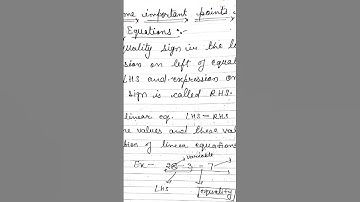 me important points
Equations :-
quality sign in the l
sion on left of equal
LHS and expression on
sign is called RHS.
linear eq. LHS = RHS
ne values and these va
tion of linear equations
Ex - 2x - 3 = 7
variable
LHS
equality